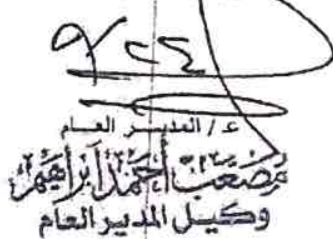 ع / المدير العام
مصعب أحمد إبراهيم
وكيل المدير العام